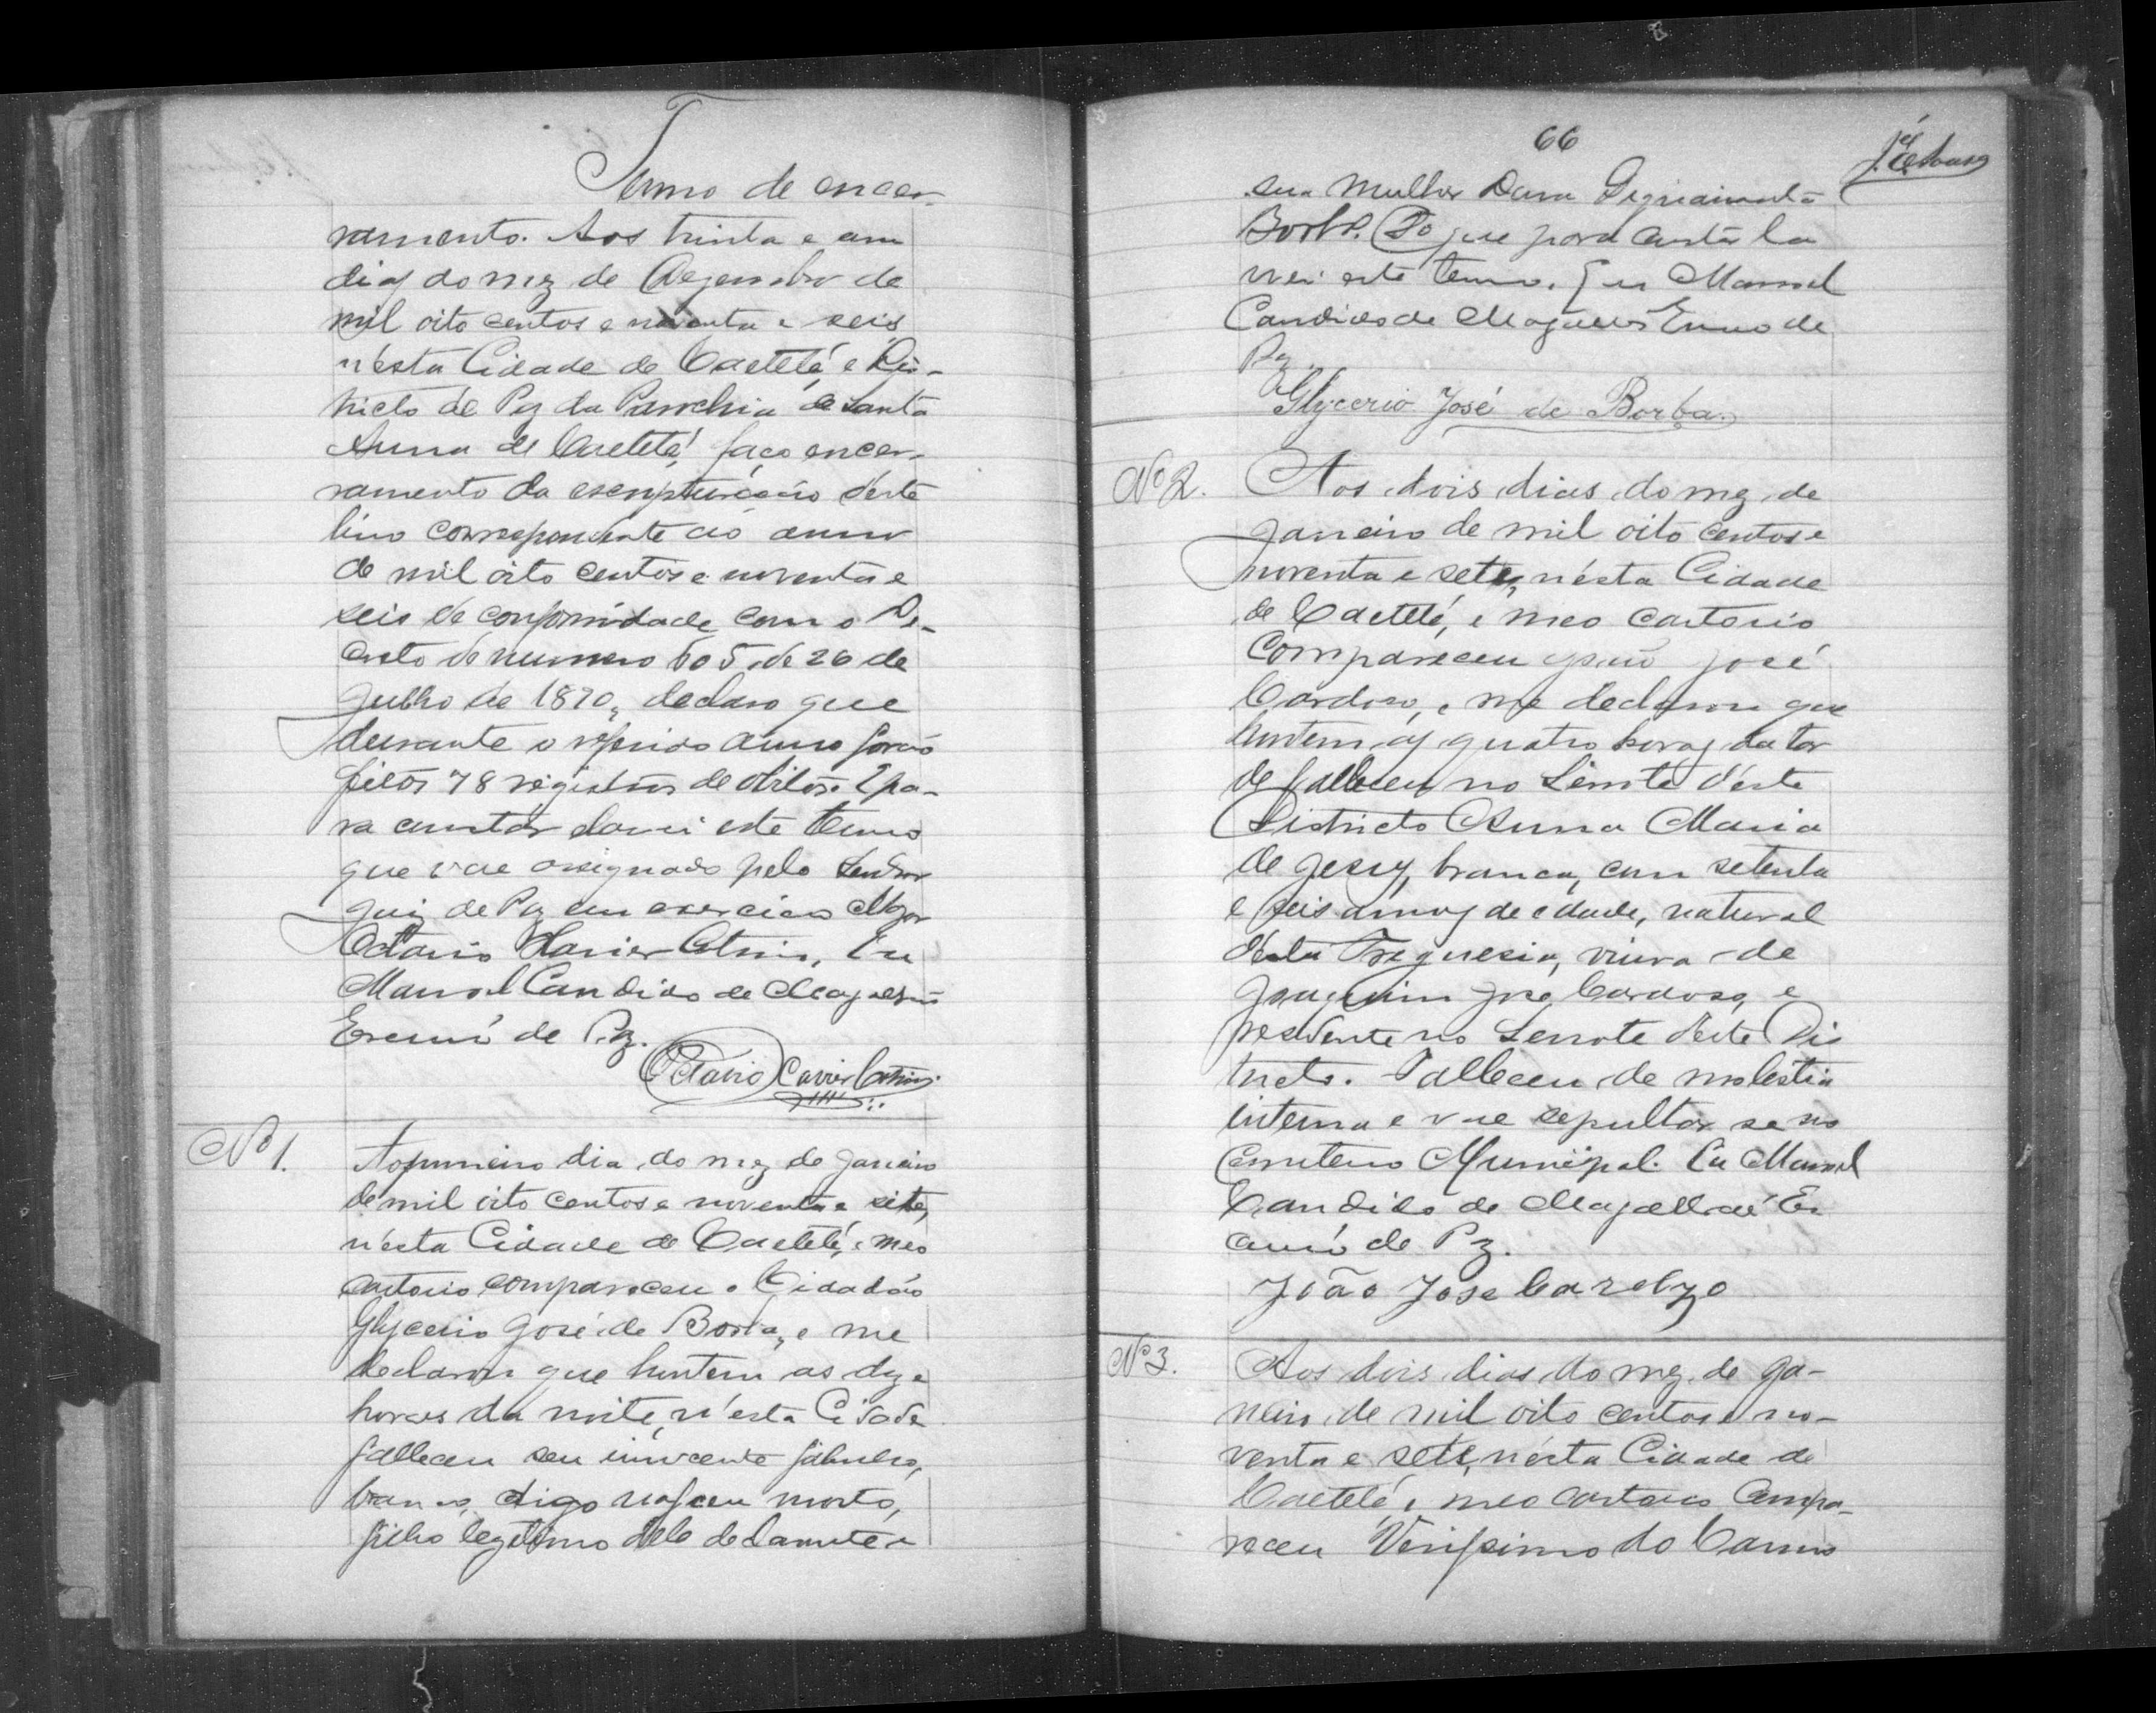 Termo de encer-
ramento. Aos trinta e um
dias do mez de Dezembro de
mil oito centos e noventa e seis
n'esta Cidade de Caeteté, e Dis-
tricto de Paz da Parochia de Santa
Anna de Caeteté, faço encer-
ramento da escripturação d'este
livro correspondente ao anno
de mil oito centos e noventa e
seis de conformidade com o De-
creto de numero 605 de 26 de
Julho de 1890, declaro que
durante o referido anno forão
feitos 78 registros de obitos. E pa-
ra constar lavrei este termo
que vae assignado pelo Senhor
Juiz de Paz em exercicio Major
Octavio Xavier Cotrim, Eu
Manoel Candido de Magalhães
Escrivão de Paz.
Octavio Xavier Cotrim
Nº 1.
Ao primeiro dia do mez de Janeiro
de mil oito centos e noventa e sete,
n'esta Cidade de Caeteté, e meo
cartorio compareceu o Cidadão
Glycerio José de Borba, e me
declarou que hontem as dez e
horas da noite, n'esta Cidade
falleceu seu innocente filhinho,
branco, digo nasceu morto,
filho legitimo delle declarante e
66
sua mulher Dona
Borba. Do que para constar la
vrei este termo. Eu Manoel
Candido de Magalhães Escrivão de
Paz
Glycerio José de Borba.
Nº 2.
Aos dois dias do mez de
Janeiro de mil oito centos e
noventa e sete, n'esta Cidade
de Caeteté, e meo cartorio
Compareceu João José
Cardoso, e me declarou que
hontem as quatro horas da tar
de falleceu no Serrote d'este
Districto Anna Maria
de Jesus, branca, com setenta
e seis annos de edade, natural
desta Freguesia, viuva de
Joaquim Jose Cardoso, e
residente no Serrote deste Dis
tricto. Falleceu de molestia
interna e vae sepultar se no
Cemiterio Municipal. Eu Manoel
Candido de Magalhães Es
crivão de Paz.
João Jose Carolzo
Nº 3.
Aos dois dias do mez de Ja-
neiro de mil oito centos e no-
venta e sete, n'esta Cidade de
Caeteté, e meo cartorio Compa-
receu Verissimo do Carmo